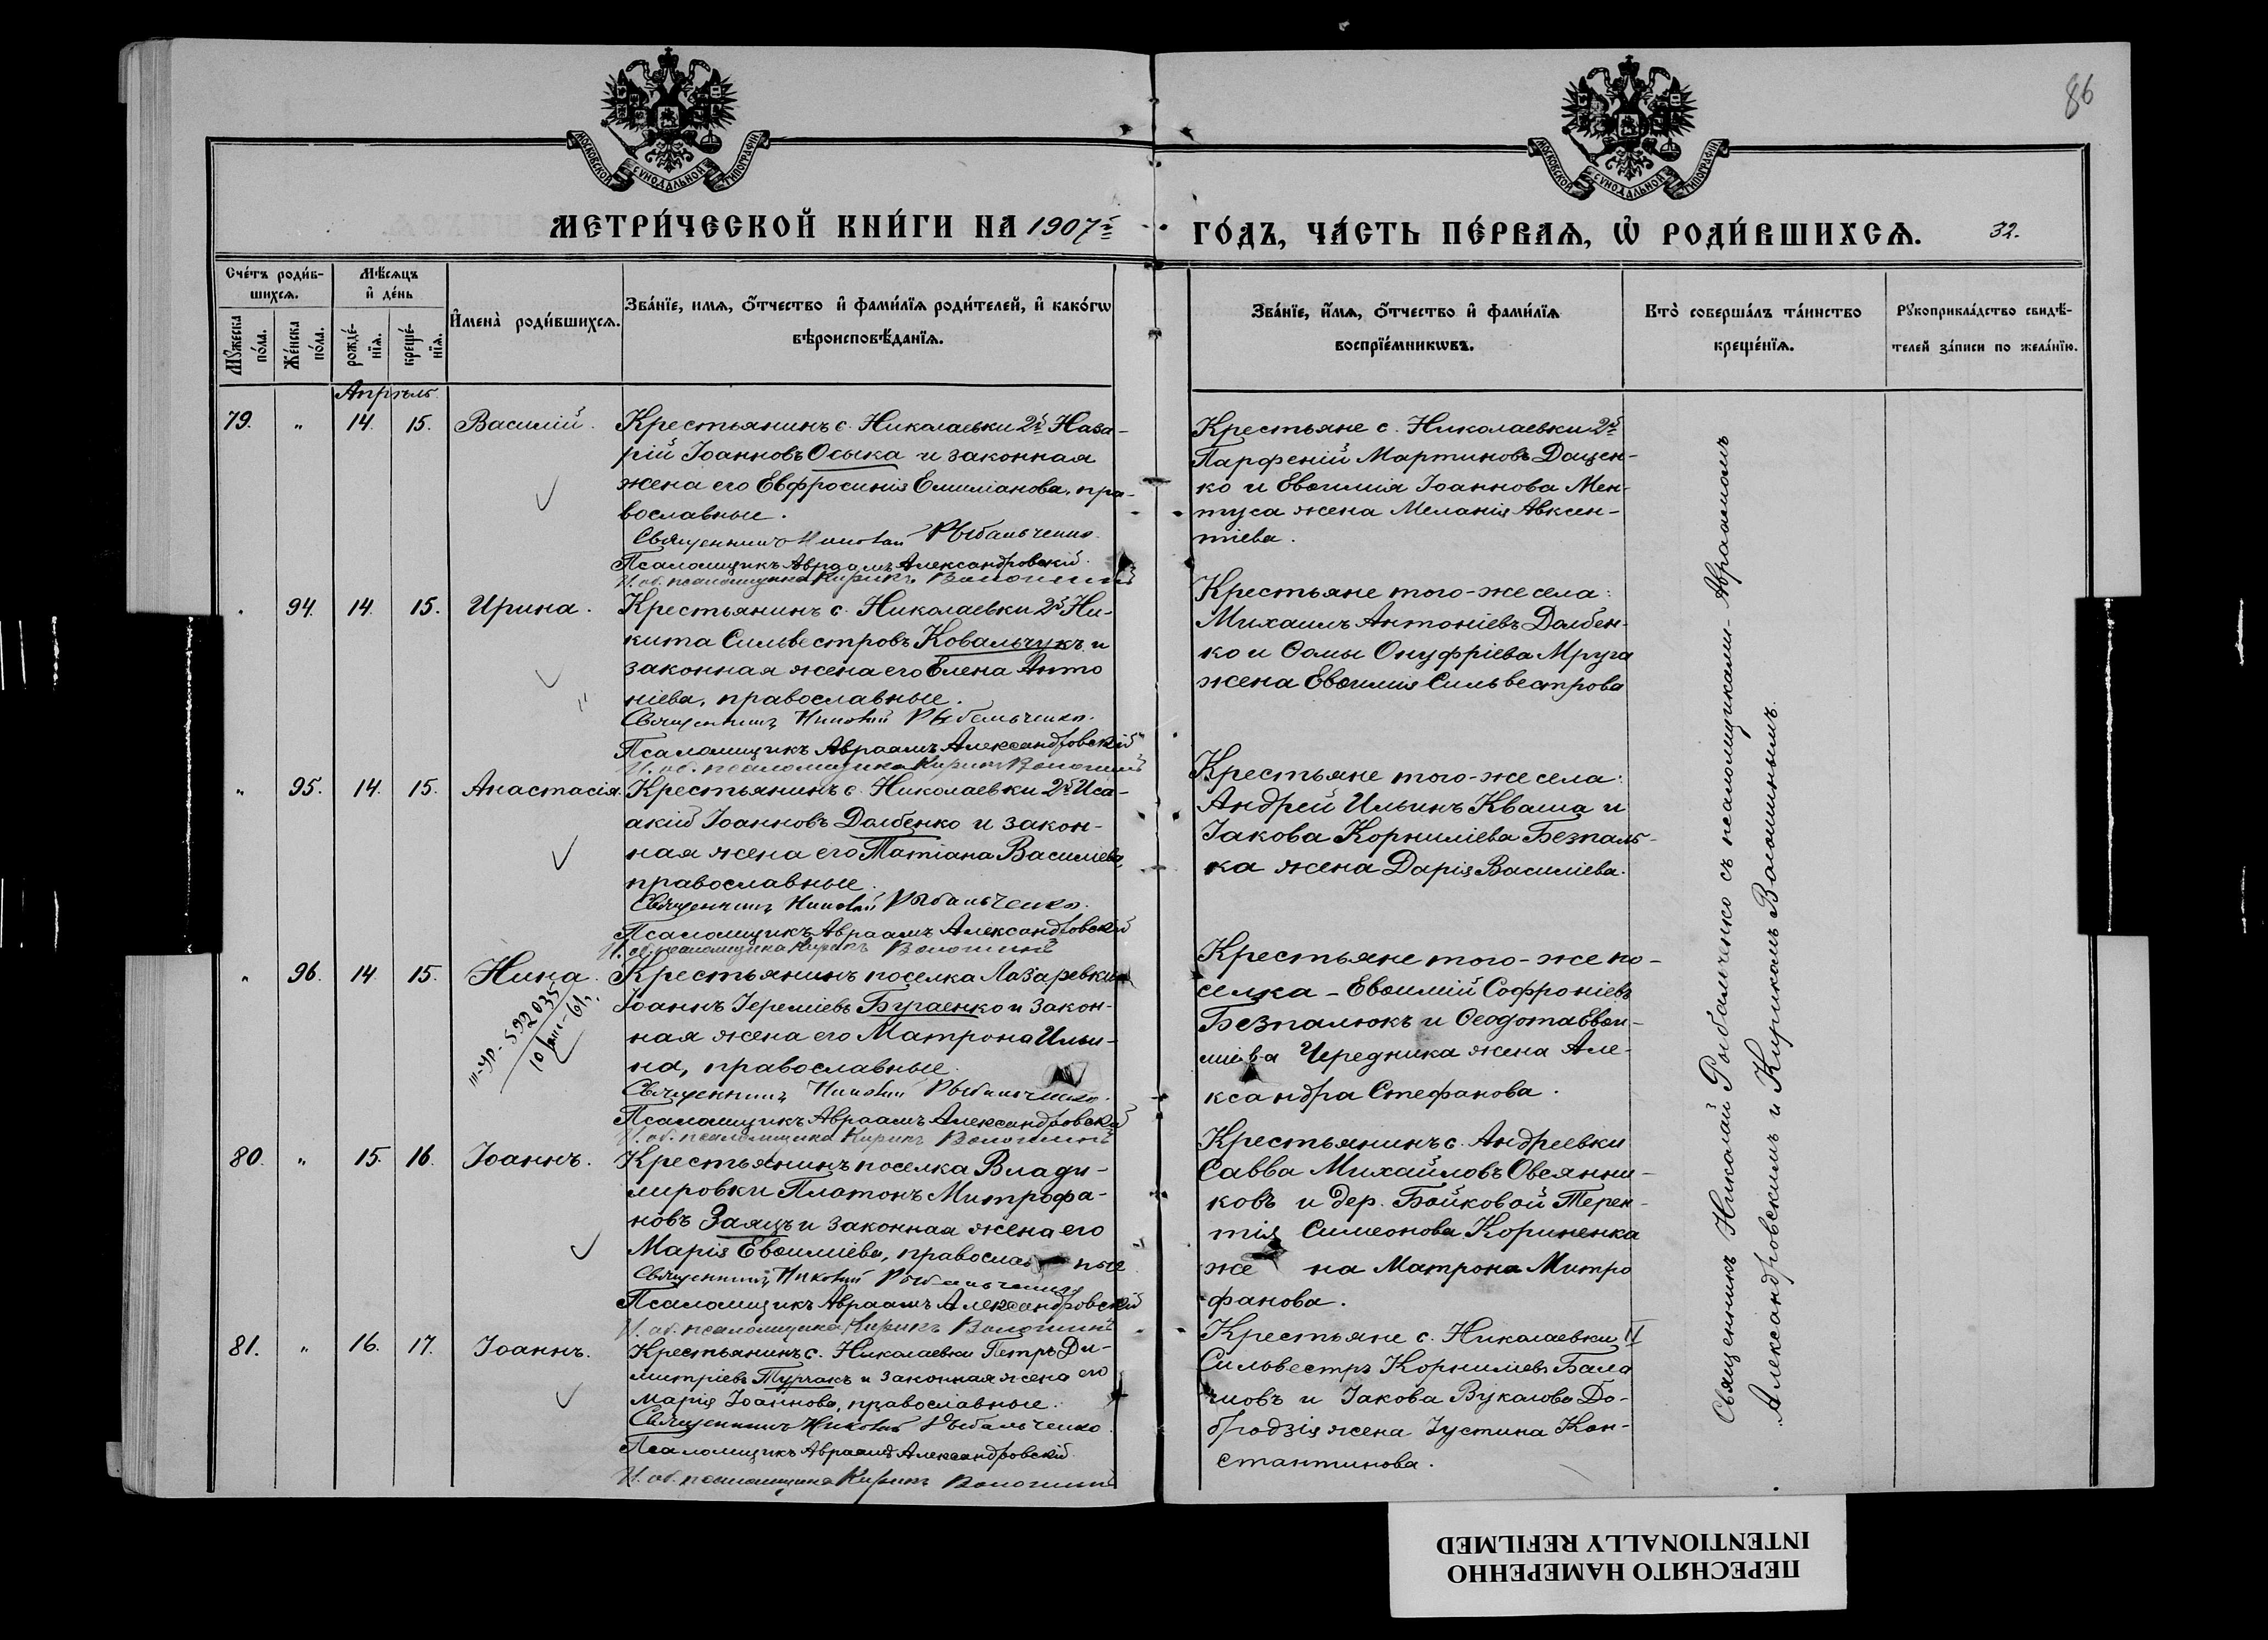 86
МОСКОВСКОЙ СУНОДАЛЬНОЙ ТИПОГРАФІИ
МОСКОВСКОЙ СУНОДАЛЬНОЙ ТИПОГРАФІИ
МЕТРИ́ЧЕСКОЙ КНИ́ГИ НА 1907й
ГО́ДЪ, ЧА́СТЬ ПЕ́РВАѦ, Ѡ҆ РОДИ́ВШИХСѦ. 32.
Сче́тъ роди́в-
шихсѧ.
Мꙋ́жеска по́ла.
Же́нска по́ла.
Мѣ́сѧцъ
и҆ де́нь
рожде́-
нїѧ.
креще́-
нїѧ.
И҆мена̀ роди́вшихсѧ.
Зва́нїе, имѧ, ѻ҆́тчество и҆ фами́лїѧ роди́телей, и҆ како́гѡ
вѣроисповѣ́данїѧ.
Зва́нїе, и҆́мѧ, ѻ҆́тчество и҆ фами́лїѧ
воспрїе́мникѡвъ.
Кто̀ соверша́лъ та́инство
креще́нїѧ.
Рꙋкоприкла́дство свидѣ́-
телей за́писи по жела́нїю.
Апрѣль
79. " 14. 15. Василій.
Крестьянинъ с. Николаевки 2й Наза-
рій Іоанновъ Осыка и законная
жена его Евфросинія Емиліанова, пра-
вославные.
Священникъ Николай Рыбальченко.
Псаломщикъ Авраамъ Александровскій.
И. об. псаломщика Кирикъ Волошинъ
Крестьяне с. Николаевки 2й
Парфеній Мартиновъ Доцен-
ко и Евѳимія Іоаннова Мен-
туса жена Меланія Авксен-
тіева.
" 94. 14. 15. Ирина.
Крестьянинъ с. Николаевки 2й Ни-
кита Сильвестровъ Ковальчукъ и
законная жена его Елена Анто
ніева, православные.
Священникъ Николай Рыбальченко.
Псаломщикъ Авраамъ Александровскій
И. об. псаломщика Кирикъ Волошинъ
Крестьяне того-же села:
Михаилъ Антоніевъ Долбен-
ко и Ѳомы Онуфріева Мруга
жена Евѳимія Сильвестрова
" 95. 14. 15. Анастасія.
Крестьянинъ с. Николаевки 2й Иса-
акій Іоанновъ Долбенко и закон-
ная жена его Татіана Василіева,
православные.
Священникъ Николай Рыбальченко.
Псаломщикъ Авраамъ Александровскій
И. об. псаломщика Кирикъ Волошинъ
Крестьяне того-же села:
Андрей Ильинъ Кваша и
Іакова Корниліева Безпаль-
ка жена Дарія Василіева.
" 96. 14. 15. Нина.
Крестьянинъ поселка Лазаревки
Іоаннъ Іереміевъ Бугаенко и закон-
ная жена его Матрона Ильи-
на, православные.
Священникъ Николай Рыбальченко.
Псаломщикъ Авраамъ Александровскій
И. об. псаломщика Кирикъ Волошинъ
Крестьяне того-же по-
селка - Евѳимій Софроніевъ
Безпалюкъ и Ѳеодота Евѳи-
міева Чередника жена Але-
ксандра Стефанова.
80. " 15. 16. Іоаннъ.
Крестьянинъ поселка Влади-
мировки Платонъ Митрофа-
новъ Заяцъ и законная жена его
Марія Евѳиміева, православные
Священникъ Николай Рыбальченко
Псаломщикъ Авраамъ Александровскій
И. об. псаломщика Кирикъ Волошинъ
Крестьянинъ с. Андреевки
Савва Михайловъ Овсянни-
ковъ и дер. Бойковой Терен-
тія Симеонова Кориненка
жена Матрона Митро
фанова.
81. " 16. 17. Іоаннъ.
Крестьянинъ с. Николаевки Петръ Ди-
митріевъ Турчакъ и законная жена его
Марія Іоаннова, православные.
Священникъ Николай Рыбальченко
Псаломщикъ Авраамъ Александровскій
И. об. псаломщика Кирикъ Волошинъ
Крестьяне с. Николаевки II
Сильвестръ Корниліевъ Бала
шовъ и Іакова Вукалова До-
бродзія жена Іустина Кон-
стантинова.
Священникъ Николай Рыбальченко съ псаломщиками- Авраамомъ
Александровскимъ и Кирикомъ Волошинымъ.
ПЕРЕСНЯТО НАМЕРЕННО
INTENTIONALLY REFILMED